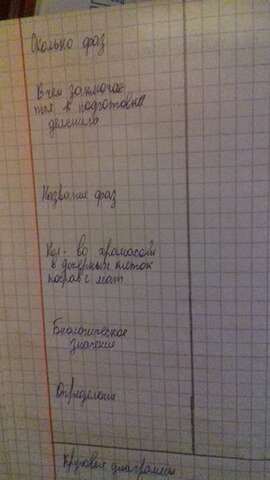 Сколько фаз
В чем заключае
тся в подготовка
деления
Название фаз
Кол-во хромосом
в дочерних клеток
по срав с мат
Биологическое
значение
Определение
Круговая диаграмма